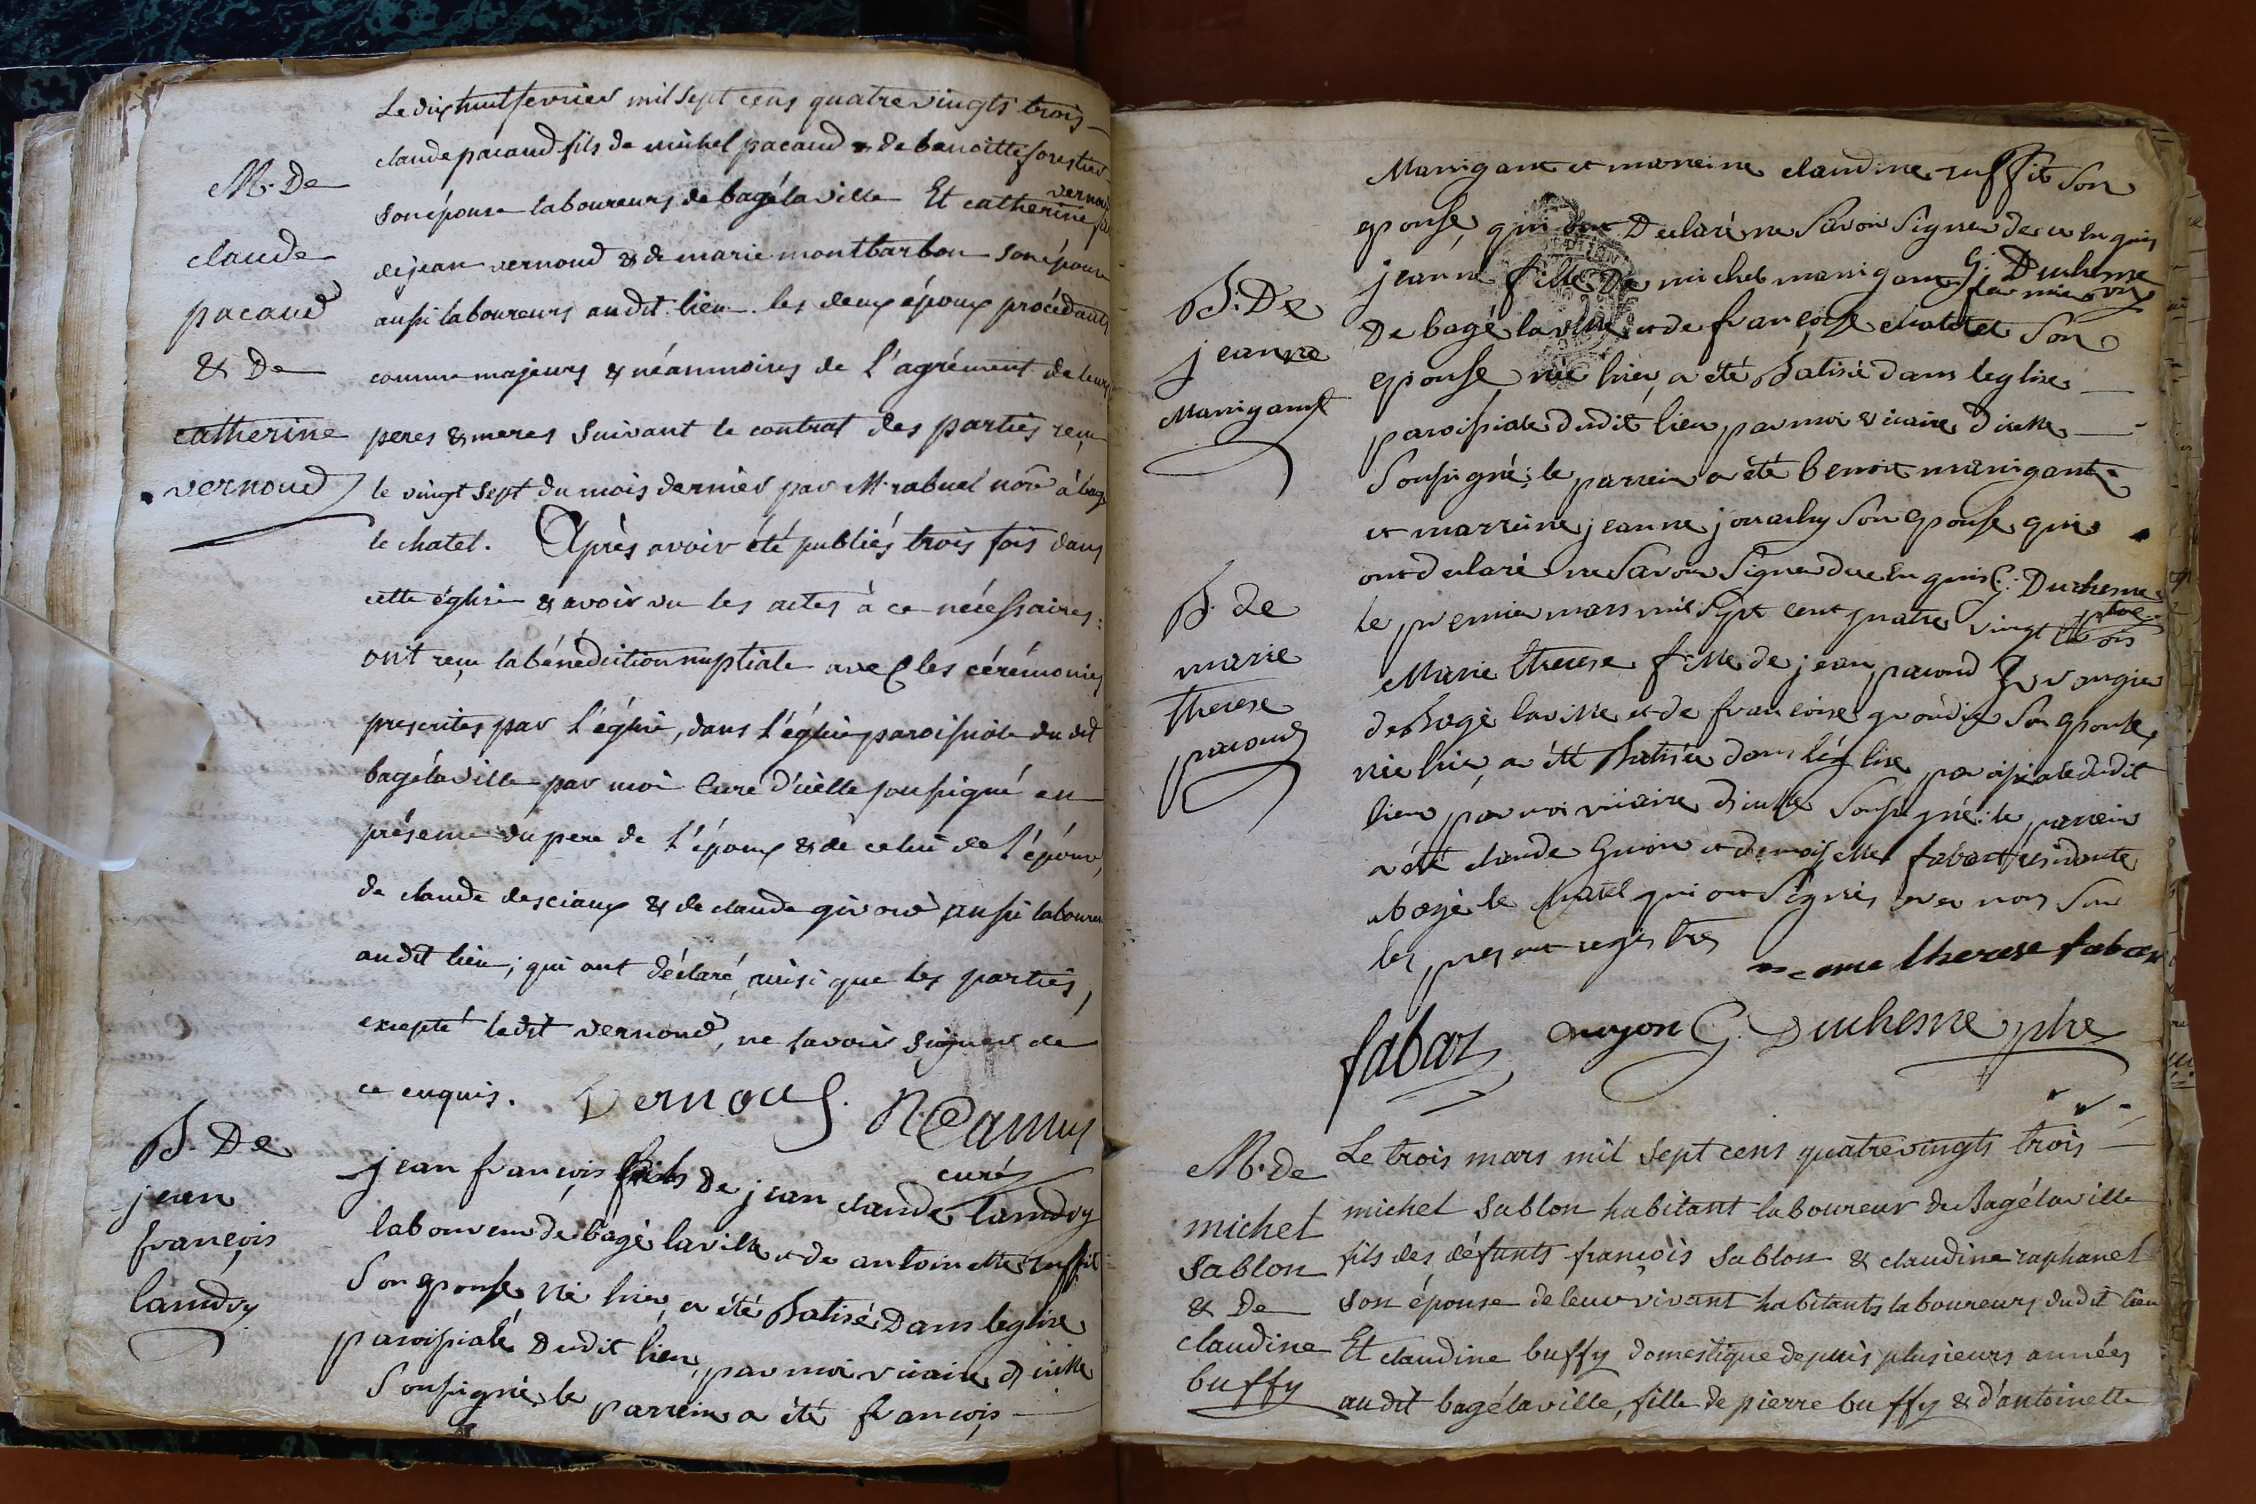 Le dix huit fevrier mil sept cens quatre vingts trois
claude pacaud fils de michel pacaud & de benoitte forestier
M. De
son épouse laboureurs de bagélaville Et catherine vernoud
claude
de jean vernoud & de marie montbarbon son épouse
pacaud
aussi laboureurs au dit lieu. les deux époux procédants
& De
comme majeurs & néanmoins de l'agrément de leurs
catherine
peres & meres suivant le contrat des parties reçu
vernoud
le vingt sept du mois dernier par Mr. rabuel nore à bagé
le chatel. Après avoir été publiés trois fois dans
cette église & avoir vu les actes à ce nécessaires:
ont reçu la bénédiction nuptiale avec les cérémonies
prescrites par l'église, dans l'église paroissiale du dit
bagélaville par moi Curé d'icelle soussigné en
présence du pere de l'époux & de celui de l'épouse,
de claude desciaux & de claude aussi laboureurs
au dit lieu; qui ont déclaré, ainsi que les parties,
excepté le dit vernoud, ne savoir signer de
ce enquis. Vernoud. N Camus
curé
B. De
jean
françois
landry
jean françois fils de jean claude landry
laboureur de bagé laville et de antoinette ruffit
son epouse né hier, a été Batisé Dans leglise
paroissiale Dudit lieu, par moi vicaire d'icelle
soussigné, le parrein a été françois
Manigant et mareine claudine ruffit son
epouse, qui ont Declaré ne savoir signer de ce enquis
G. Duchesne
B. De
jeanne
Manigant
jeanne fille De michel manigant
De bagé laville et de françoise chatelet son
epouse née hier, a été Batisée dans leglise
paroissiale dudit lieu, par moi vicaire d'icelle
soussigné; le parrein a été benoit manigant
et marreine jeanne son epouse qui
ont declaré ne savoir signer de ce enquis G. Duchesne
ptre
B. de
marie
therese
pacoud
le premier mars mil sept cent quatre vingt trois
Marie therese fille de jean pacoud
de Bagé laville et de francoise son epouse,
née hier, a été Batisée dans léglise paroissiale dudit
lieu, par moi vicaire d'icelle soussigné: le parrein
a été claude Guion et demoiselle fabar residente
a bagé le chatel qui ont signés avec nous sur
les present registres
therese fabar
fabar guyon G. Duchesne ptre
M. de
michel
sablon
& De
claudine
buffy
Le trois mars mil sept cens quatre vingts trois
michel sablon habitant laboureur de Bagélaville
fils des défunts françois sablon & claudine raphanel
son épouse de leur vivant habitants laboureurs du dit lieu
Et claudine buffy domestique depuis plusieurs années
au dit bagélaville, fille de pierre buffy & d'antoinette